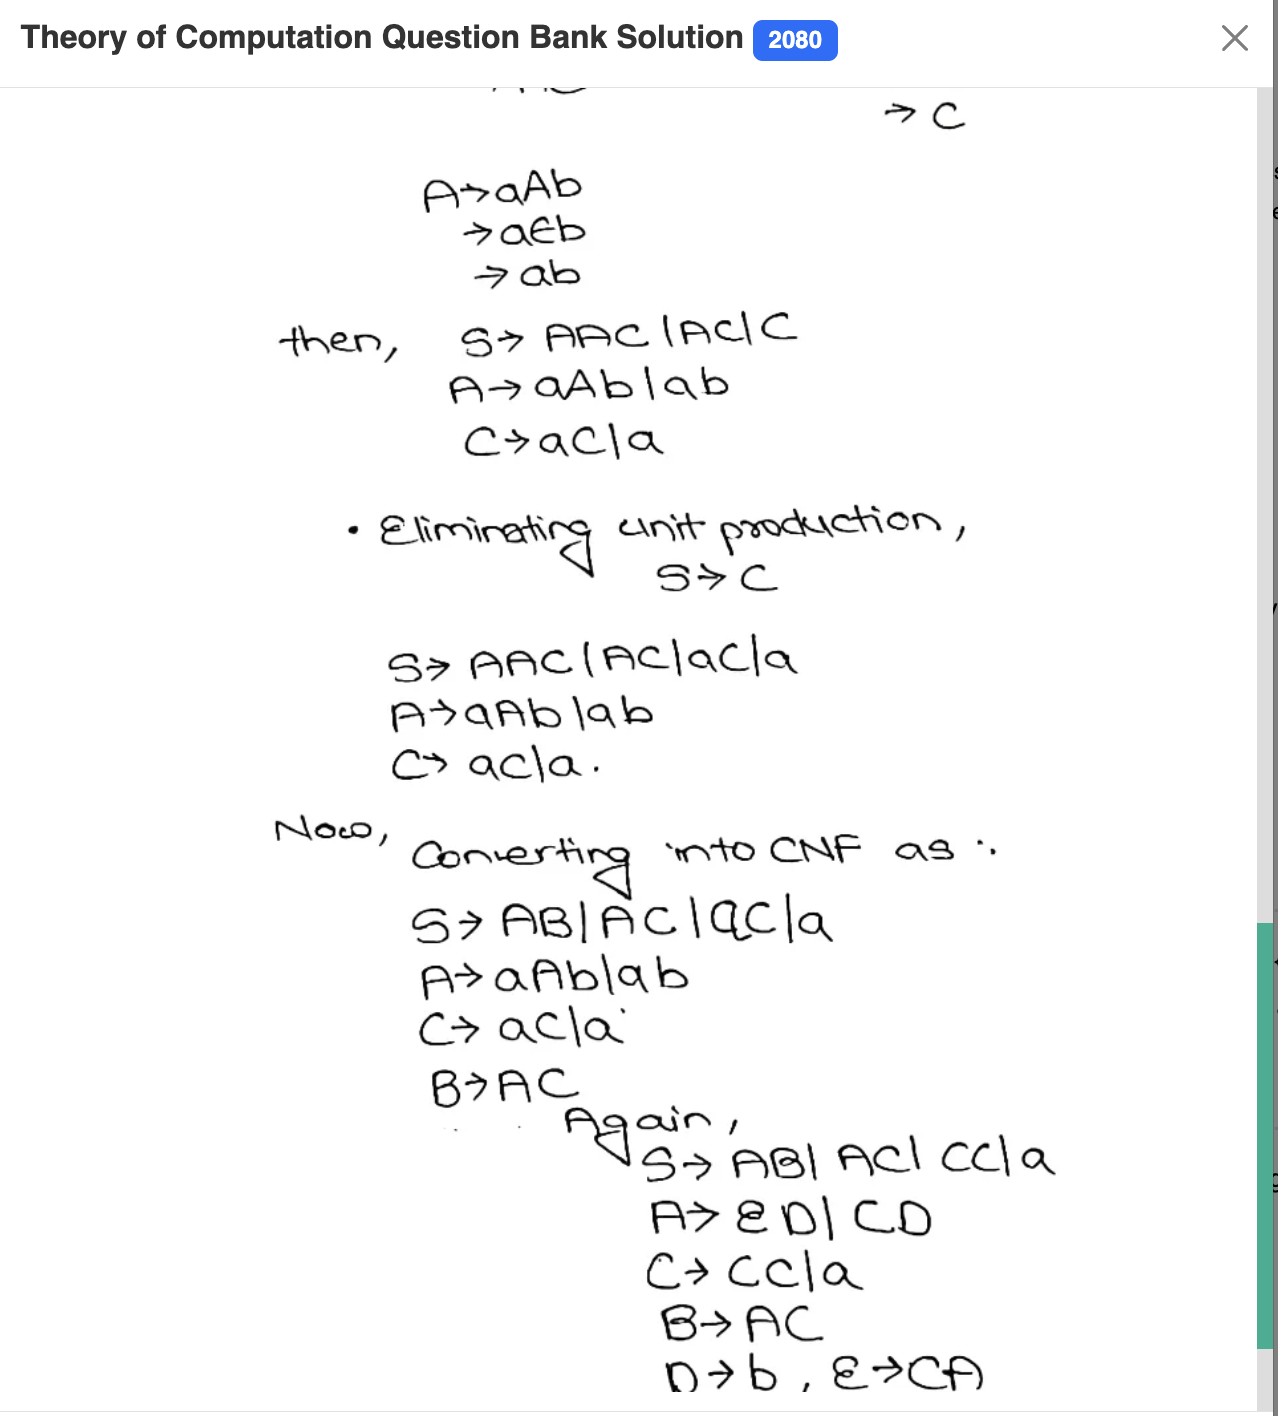 Theory of Computation Question Bank Solution 2080
→ C
A→aAb
→ a∈b
→ ab
then, S→ AAC|AC|C
A→aAb|ab
C→aC|a
• Eliminating unit production,
S→ C
S→ AAC|AC|aC|a
A→aAb|ab
C→ aC|a.
Now,
Converting into CNF as :
S→ AB|AC|aC|a
A→aAb|ab
C→ aC|a
B→AC
Again,
S→ AB| AC| CC|a
A→ ED| CD
C→ CC|a
B→AC
D→b, E→CA